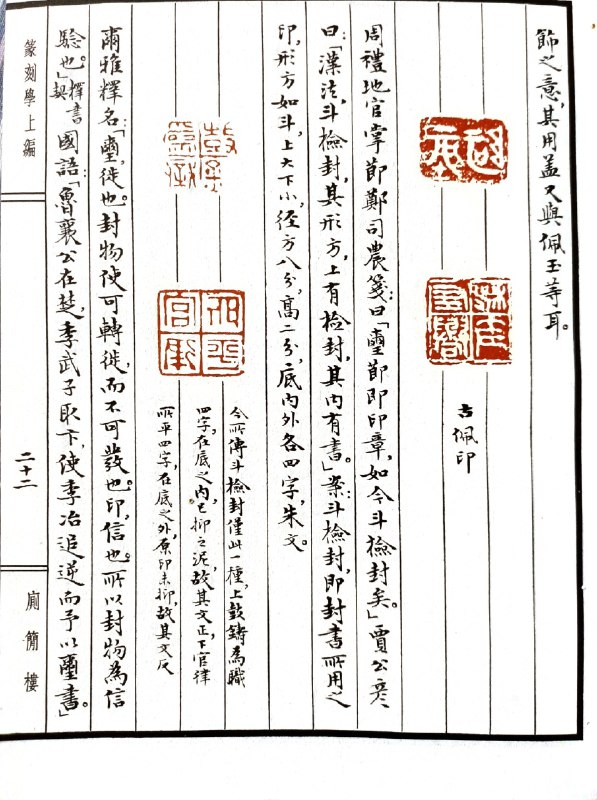 飾之意,其用蓋又與佩玉等耳。
古佩印
周禮地官掌節鄭司農箋曰:「璽節即印章,如今斗檢封矣。」賈公彥
曰:「漢法,斗檢封,其形方,上有檢封,其內有書。」案:斗檢封,即封書所用之
印,形方如斗,上大下小,徑方八分,高二分,底內外各四字,朱文。
今所傳斗檢封僅此一種,上鼓鑄為職
四字,在底之內,已抑之泥,故其文正,下官律
所平四字,在底之外,原印未抑,故其文反
鼓鑄為職
官律所平
爾雅釋名:「璽,徙也。封物使可轉徙,而不可發也。印,信也。所以封物為信
驗也。」釋書契國語:「魯襄公在楚,季武子取卞,使季冶追逆而予以璽書。」
篆刻學上編
二十二
廁簡樓